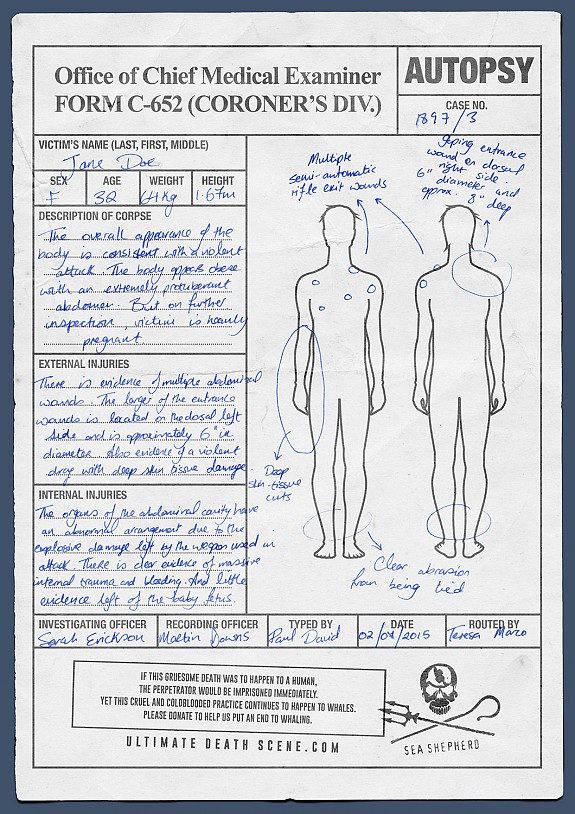 Office of Chief Medical Examiner
FORM C-652 (CORONER'S DIV.)
AUTOPSY
CASE NO.
1897/3
VICTIM'S NAME (LAST, FIRST, MIDDLE)
Jane Doe
SEX
AGE
WEIGHT
HEIGHT
F
32
64kg
1.67m
DESCRIPTION OF CORPSE
The overall appearance of the
body is consistent with a violent
attack. The body appears obese
with an extremely protuberant
abdomen. But on further
inspection, victim is heavily
pregnant.
EXTERNAL INJURIES
There is evidence of multiple abdominal
wounds. The larger of the entrance
wounds is located on the dosal left
side and is approximately 6" in
diameter. Also evidence of a violent
drag with deep skin tissue damage
INTERNAL INJURIES
The organs of the abdominal cavity have
an abnormal arrangement due to the
explosive damage left by the weapon used in
attack. There is clear evidence of massive
internal trauma and bleeding. And little
evidence left of the baby fetus.
Multiple
semi-automatic
rifle exit wounds
Gaping entrance
wound on dorsal
6" right side
diameter and
approx. 8" deep
Deep
skin-tissue
cuts
Clear abrasion
from being tied
INVESTIGATING OFFICER
RECORDING OFFICER
TYPED BY
DATE
ROUTED BY
Sarah Erickson
Martin Downs
Paul David
02/04/2015
Teresa Marco
IF THIS GRUESOME DEATH WAS TO HAPPEN TO A HUMAN,
THE PERPETRATOR WOULD BE IMPRISONED IMMEDIATELY.
YET THIS CRUEL AND COLDBLOODED PRACTICE CONTINUES TO HAPPEN TO WHALES.
PLEASE DONATE TO HELP US PUT AN END TO WHALING.
ULTIMATE DEATH SCENE.COM
SEA SHEPHERD